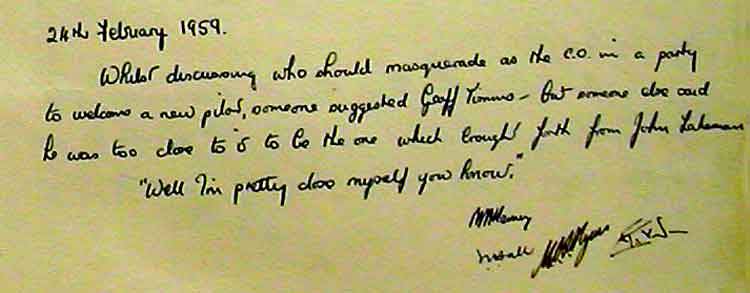 24th February 1959.
Whilst discussing who should masquerade as the C.O. in a party
to welcome a new pilot, someone suggested Geoff Timms - but someone else said
he was too close to it to be the one which brought forth from John Lakeman
"Well I'm pretty close myself you know."